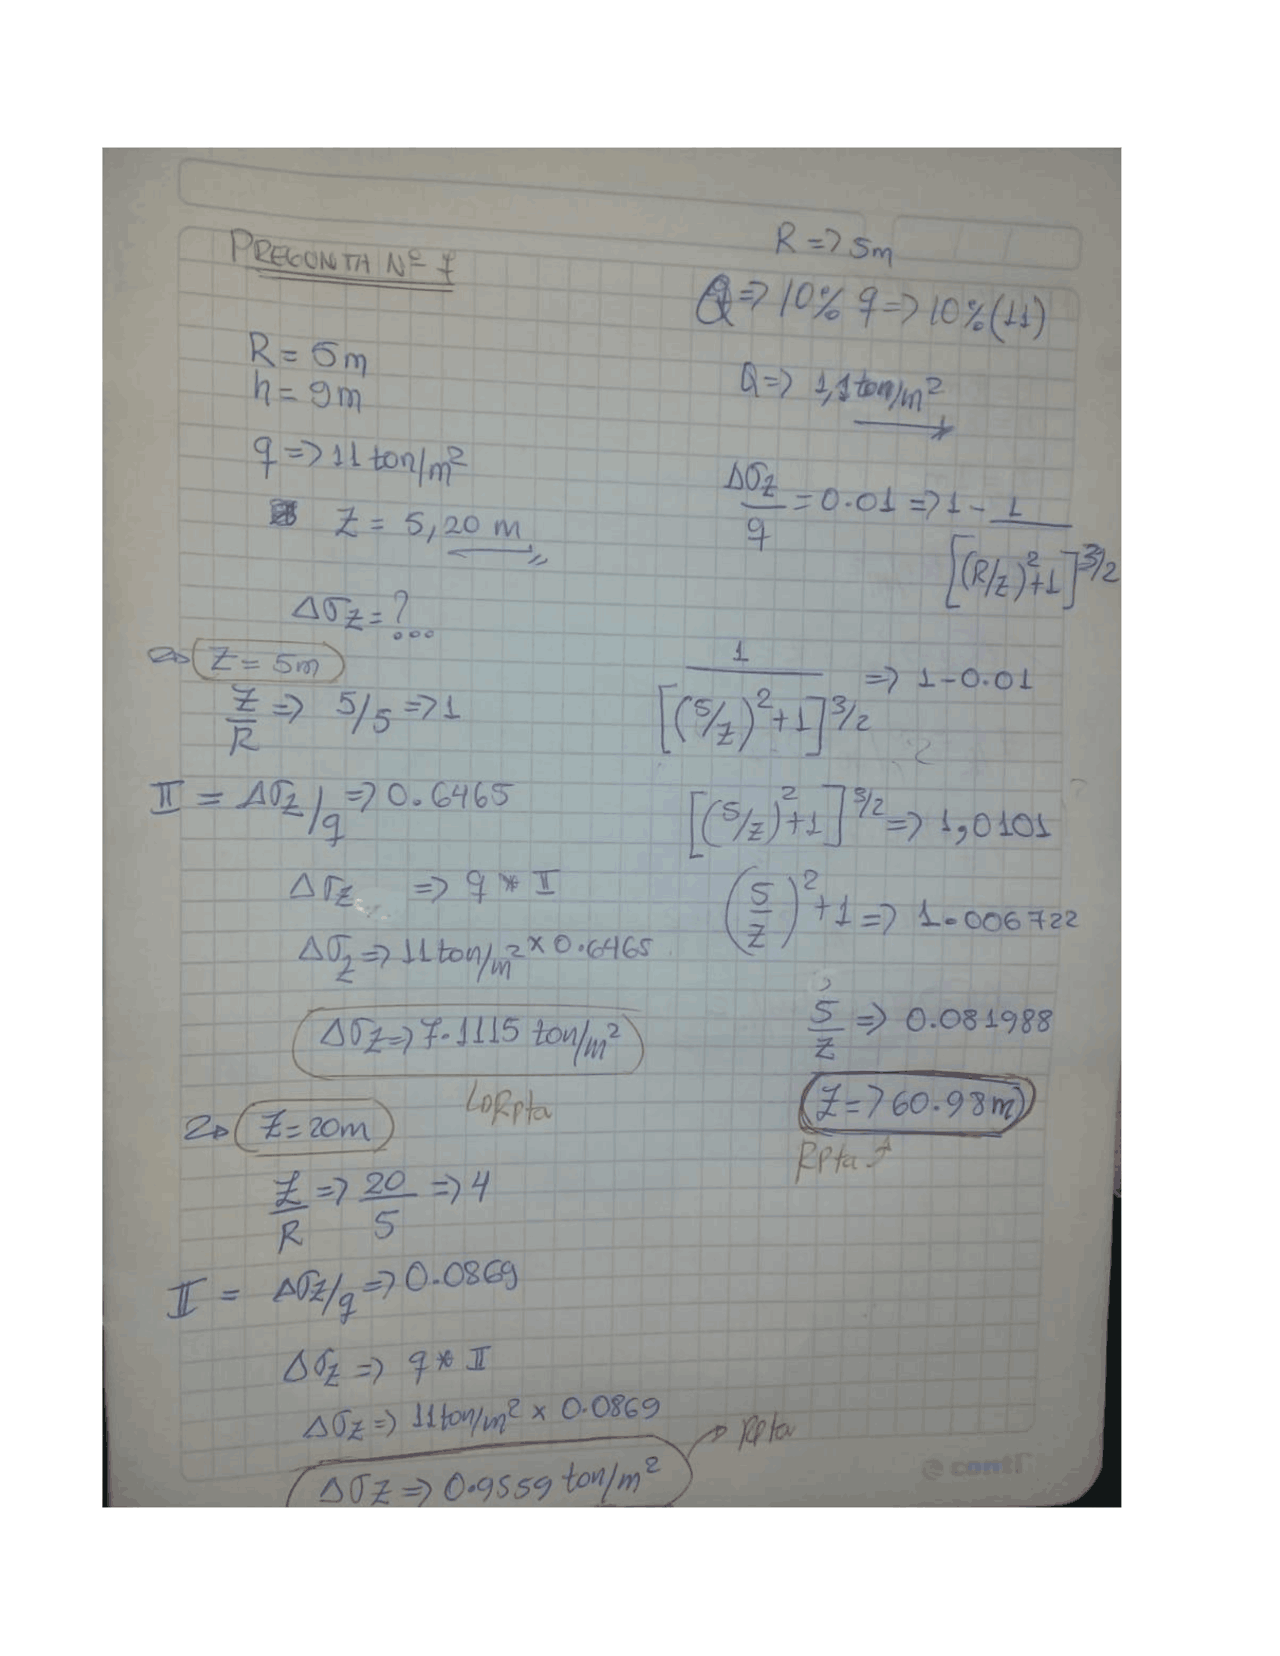 PREGUNTA Nº 7
R = 5m
h = 9m
q => 11 ton/m²
Z = 5, 20 m
Δσz = ?...
Z = 5m
Z/R => 5/5 => 1
II = Δσz/q => 0.6465
Δσz => q * II
Δσz => 11 ton/m² x 0.6465
Δσz => 7.1115 ton/m²
Rpta
Z = 20m
Z/R => 20/5 => 4
II = Δσz/q => 0.0869
Δσz => q * II
Δσz => 11 ton/m² x 0.0869
Δσz => 0.9559 ton/m²
Rpta
R => 5m
Q => 10% q => 10% (11)
Q => 1,1 ton/m²
Δσz/q = 0.01 => 1 - 1/[(R/z)²+1]^3/2
1/[(5/z)²+1]^3/2 => 1-0.01
[(5/z)²+1]^3/2 => 1,0101
(5/z)²+1 => 1.006722
5/z => 0.081988
Z => 60.98m
Rpta
conti